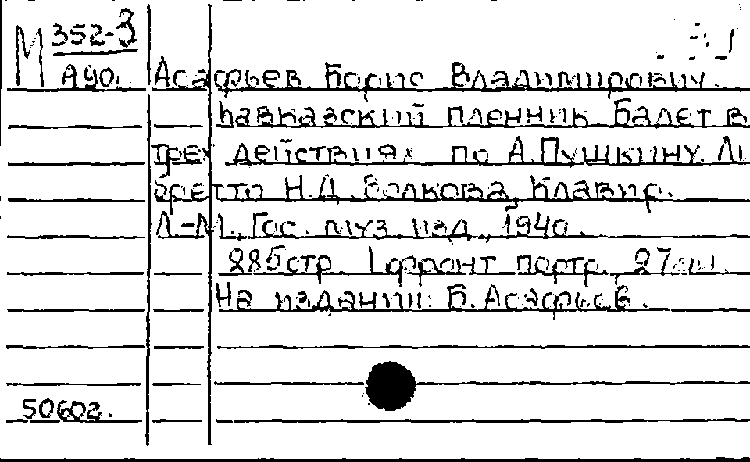 М 352-3
А90. Асафьев Борис Владимирович.
Кавказский пленник. Балет в
трех действиях по А.Пушкину. Ли
бретто Н.Д. Волкова, Клавир.
Л.-М., Гос. муз. изд., 1940.
285стр. 1фронт портр., 27см.
На издании: Б.Асафьев.
50602.